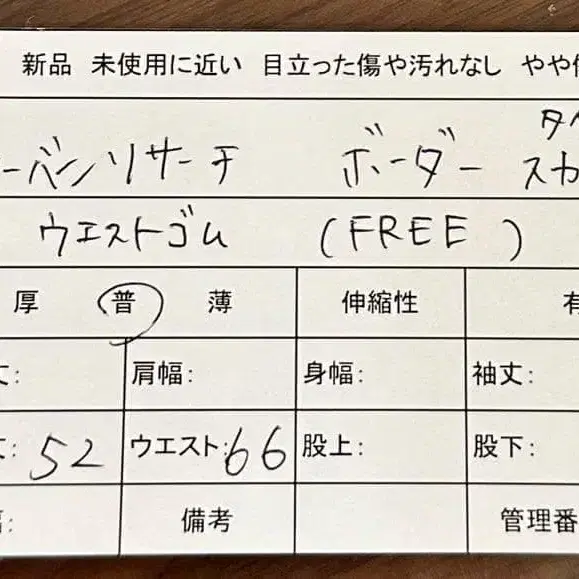 新品 未使用に近い 目立った傷や汚れなし やや
ーバンリサーチ ボーダー タ
スカ
ウエストゴム (FREE)
厚 普 薄 伸縮性 有
丈: 肩幅: 身幅: 袖丈:
丈: 52 ウエスト: 66 股上: 股下:
備考 管理番